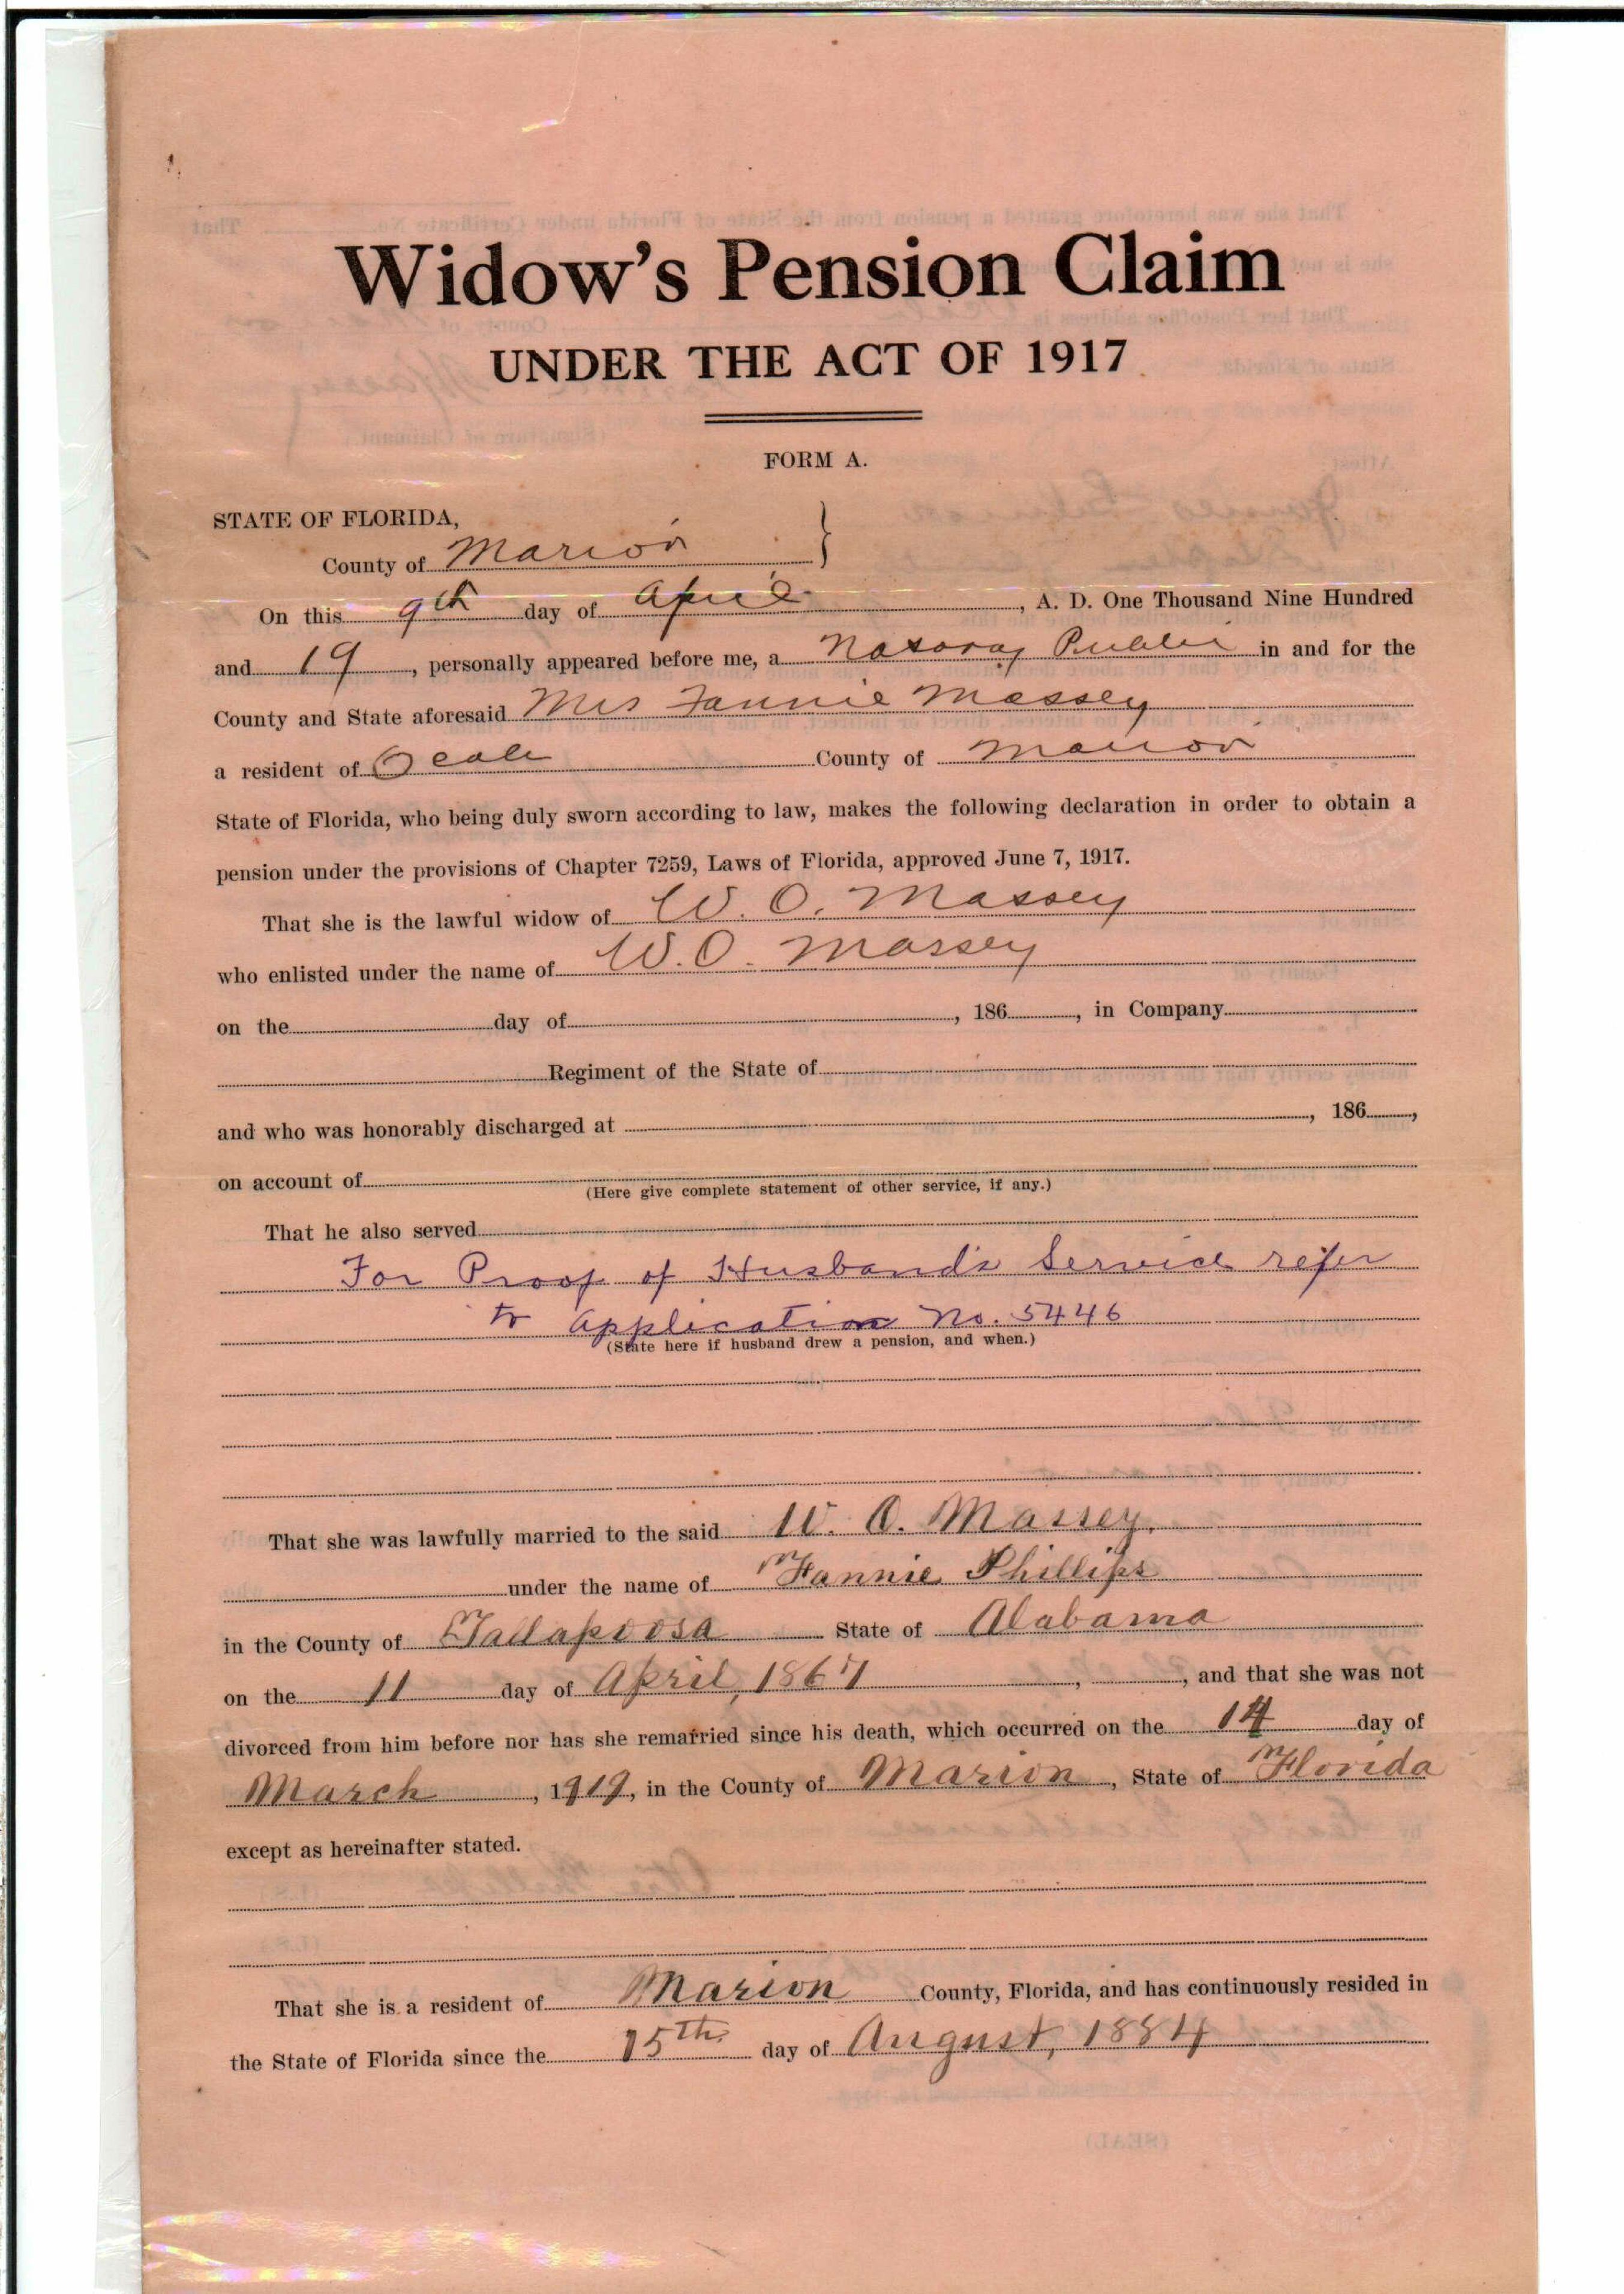 Widow's Pension Claim
UNDER THE ACT OF 1917
FORM A.
STATE OF FLORIDA,
County of Marion
On this 9th day of April, A. D. One Thousand Nine Hundred
and 19, personally appeared before me, a Notary Public in and for the
County and State aforesaid Mrs Fannie Massey
a resident of Ocala County of Marion
State of Florida, who being duly sworn according to law, makes the following declaration in order to obtain a
pension under the provisions of Chapter 7259, Laws of Florida, approved June 7, 1917.
That she is the lawful widow of W. O. Massey
who enlisted under the name of W. O. Massey
on the day of , 186 , in Company
Regiment of the State of
and who was honorably discharged at , 186 ,
on account of
(Here give complete statement of other service, if any.)
That he also served
For Proof of Husband's Service refer
to Application No. 5446
(State here if husband drew a pension, and when.)
That she was lawfully married to the said W. O. Massey,
under the name of Fannie Phillips
in the County of Tallapoosa State of Alabama
on the 11 day of April, 1867 , , and that she was not
divorced from him before nor has she remarried since his death, which occurred on the 14 day of
March , 1919, in the County of Marion, State of Florida
except as hereinafter stated.
That she is a resident of Marion County, Florida, and has continuously resided in
the State of Florida since the 15th day of August, 1884